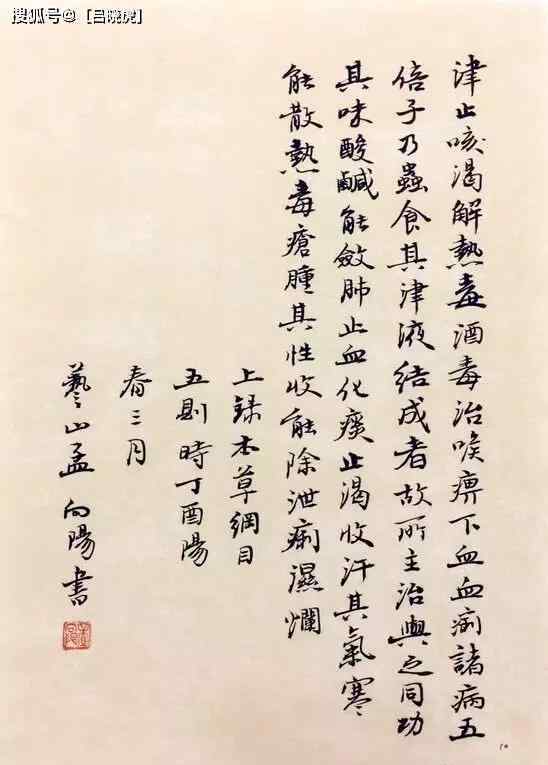 搜狐号@【吕晓虎】
津止咳渴解熱毒酒毒治喉痹下血血痢諸病五
倍子乃蟲食其津液結成者故所主治與之同功
其味酸鹹能斂肺止血化痰止渴收汗其氣寒
能散熱毒瘡腫其性收能除泄痢濕爛
上録本草綱目
五則時丁酉陽
春三月
藝山孟向陽書